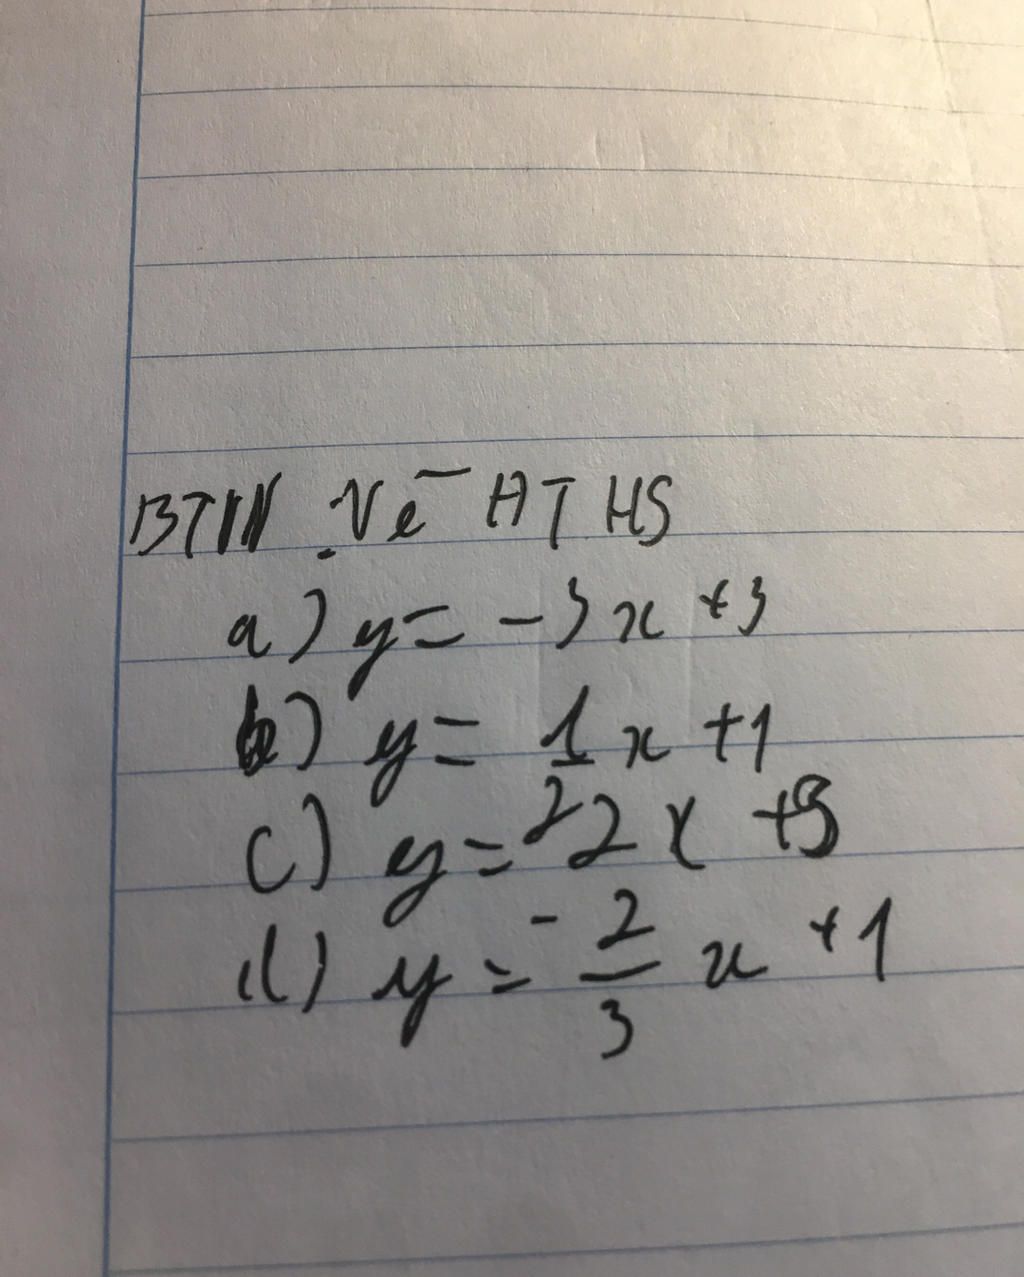 BTVN Vẽ ĐTHS
a) y = -3x + 3
b) y = 1/2 x + 1
c) y = 2x + 3
d) y = -2/3 x + 1